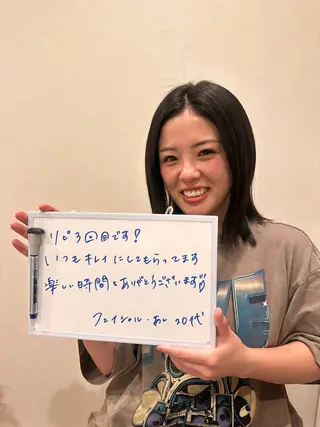 リピ3回目です!
いつもキレイにしてもらってます
楽しい時間をありがとうございます
フェイシャル・あし 20代